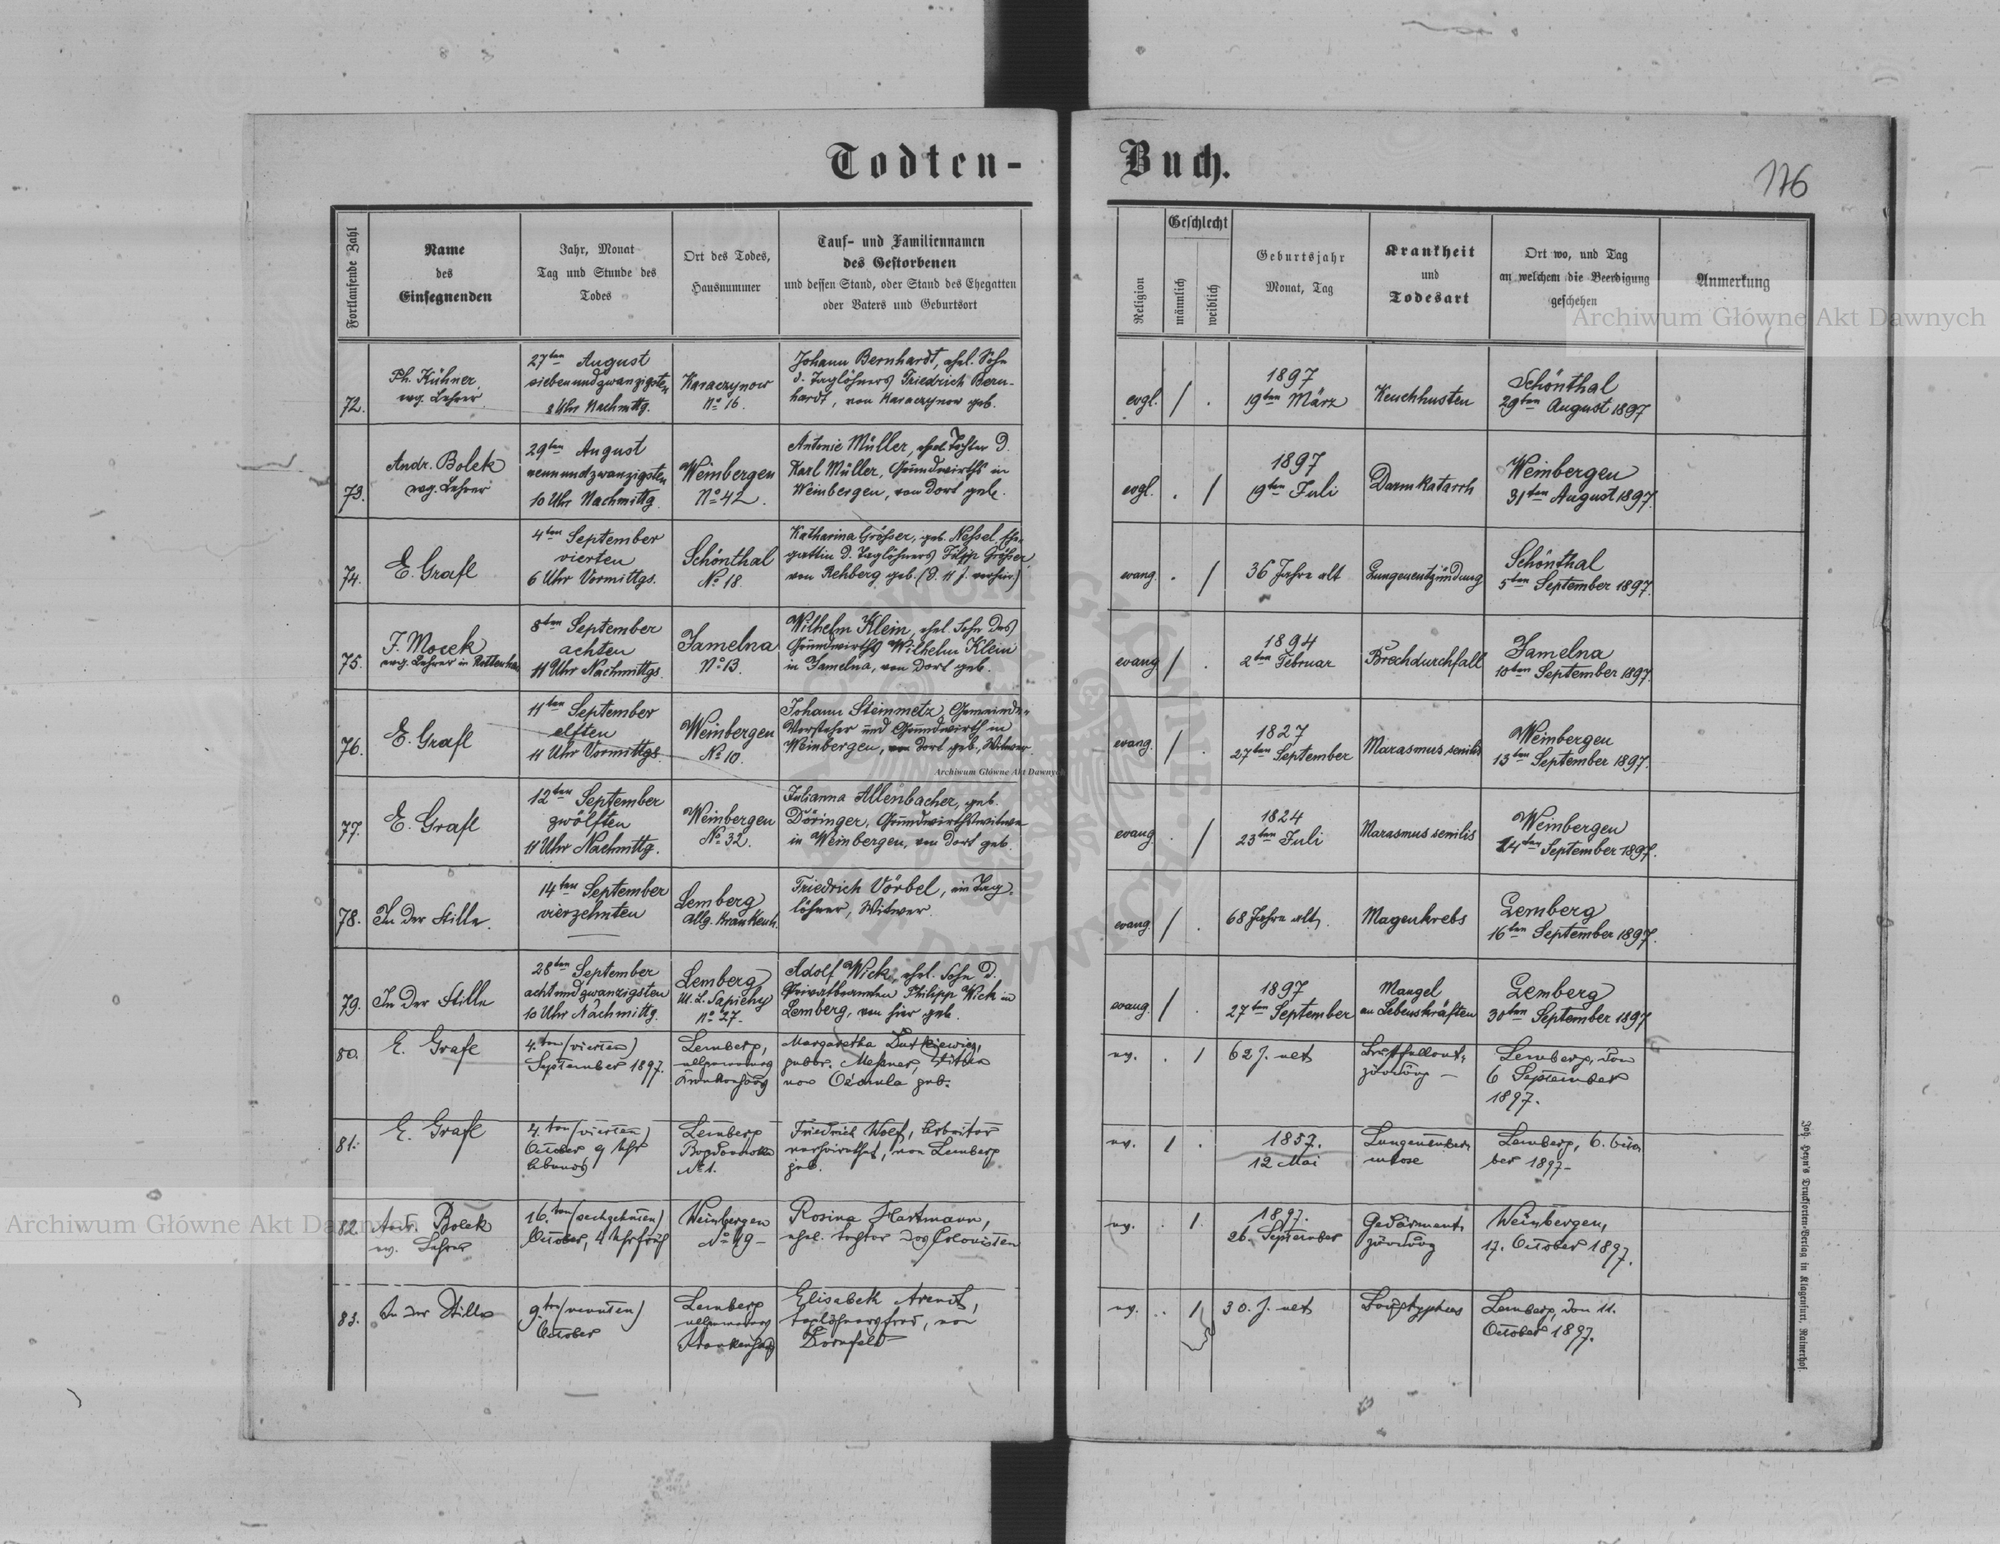 Todten-
Buch.
176
Fortlaufende Zahl
Name
des
Einsegnenden
Jahr, Monat
Tag und Stunde des
Todes
Ort des Todes,
Hausnummer
Tauf- und Familiennamen
des Gestorbenen
und dessen Stand, oder Stand des Ehegatten
oder Vaters und Geburtsort
Religion
Geschlecht
männlich
weiblich
Geburtsjahr
Monat, Tag
Krankheit
und
Todesart
Ort wo, und Tag
an welchem die Beerdigung
geschehen
Anmerkung
72.
Ph. Kühner,
evg. Lehrer
27ten August
siebenundzwanzigsten
8 Uhr Nachmttg.
Karaczynow
No 16.
Johann Bernhardt, ehel. Sohn
d. Taglöhners Friedrich Bern-
hardt, von Karaczynow geb.
evgl.
/ .
1897
19ten März
Keuchhusten
Schönthal
29ten August 1897
73.
Andr. Bolek
evg. Lehrer
29ten August
neunundzwanzigsten
10 Uhr Nachmittg.
Weinbergen
No 42.
Antonie Müller, ehel. Tochter d.
Karl Müller, Grundwirths in
Weinbergen, von dort geb.
evgl.
. /
1897
19ten Juli
Darmkatarrh
Weinbergen
31ten August 1897.
74.
E. Grafl
4ten September
vierten
6 Uhr Vormittgs.
Schönthal
No 18.
Katharina Grösser, geb. Nessel, Ehe-
gattin d. Taglöhners Filipp Grösser
von Rehberg geb.
evang.
. /
36 Jahre alt
Lungenentzündung
Schönthal
5ten September 1897.
75.
J. Mocek
evg. Lehrer in
8ten September
achten
11 Uhr Nachmittgs.
Jamelna
No 13.
Wilhelm Klein, ehel. Sohn des
Grundwirths Wilhelm Klein
in Jamelna, von dort geb.
evang
/ .
1894
2ten Februar
Brechdurchfall
Jamelna
10ten September 1897.
76.
E. Grafl
11ten September
elften
11 Uhr Vormittgs.
Weinbergen
No 10.
Johann Steinmetz, Gemeinde-
Vorsteher und Grundwirth in
Weinbergen, von dort geb., Witwer
evang.
/ .
1827
27ten September
Marasmus senilis
Weinbergen
13ten September 1897.
77.
E. Grafl
12ten September
zwölften
11 Uhr Nachmttg.
Weinbergen
No 32.
Julianna Allenbacher, geb.
Döringer, Grundwirthswitwe
in Weinbergen, von dort geb.
evang.
. /
1824
23ten Juli
Marasmus senilis
Weinbergen
14ten September 1897.
78.
In der Stille.
14ten September
vierzehnten
Lemberg
allg. Krankenh.
Friedrich Vörbel, ein Tag-
löhner, Witwer.
evang.
/ .
68 Jahre alt
Magenkrebs
Lemberg
16ten September 1897.
79.
In der Stille
28ten September
achtundzwanzigsten
10 Uhr Nachmittg.
Lemberg
ul. L. Sapiehy
No 27.
Adolf Wick, ehel. Sohn d.
Privatbeamten Philipp Wick in
Lemberg, von hier geb.
evang.
/ .
1897
27ten September
Mangel
an Lebenskräften
Lemberg
30ten September 1897
80.
E. Grafl
4.ten (vierten)
September 1897.
Lemberg,
allgemeines
Krankenhaus
Margaretha Dutkiewicz,
gebor. Messner, Witwe
von geb.
ev.
. 1
62 J. alt
Lemberg, den
6 September
1897.
81.
E. Grafl
4.ten (vierten)
October 9 Uhr
Abends
Lemberg
No 1.
Friedrich Wolf, Arbeiter
verheirathet, von Lemberg
geb.
ev.
1 .
1857.
12 Mai
Lemberg, 6. Octo
ber 1897.
82.
Andr. Bolek
ev. Lehrer
16.ten (sechzehnten)
October, 4 Uhr früh
Weinbergen
No 49
Rosina Hartmann,
ehel. Tochter des Colonisten
ev.
. 1.
1897.
26. September
Gedärment-
zündung
Weinbergen,
17. October 1897.
83.
In der Stille
9.ten (neunten)
October
Lemberg
allgemeines
Krankenhaus
Elisabeth Arendt,
Taglöhnersfrau, von
Dornfeld
ev.
. 1
30. J. alt
Lemberg, den 11.
October 1897.
Joh. Heyn's Drucksorten-Verlag in Klagenfurt, Rainerhof.
Archiwum Główne Akt Dawnych
Archiwum Główne Akt Dawnych
Archiwum Główne Akt Dawnych